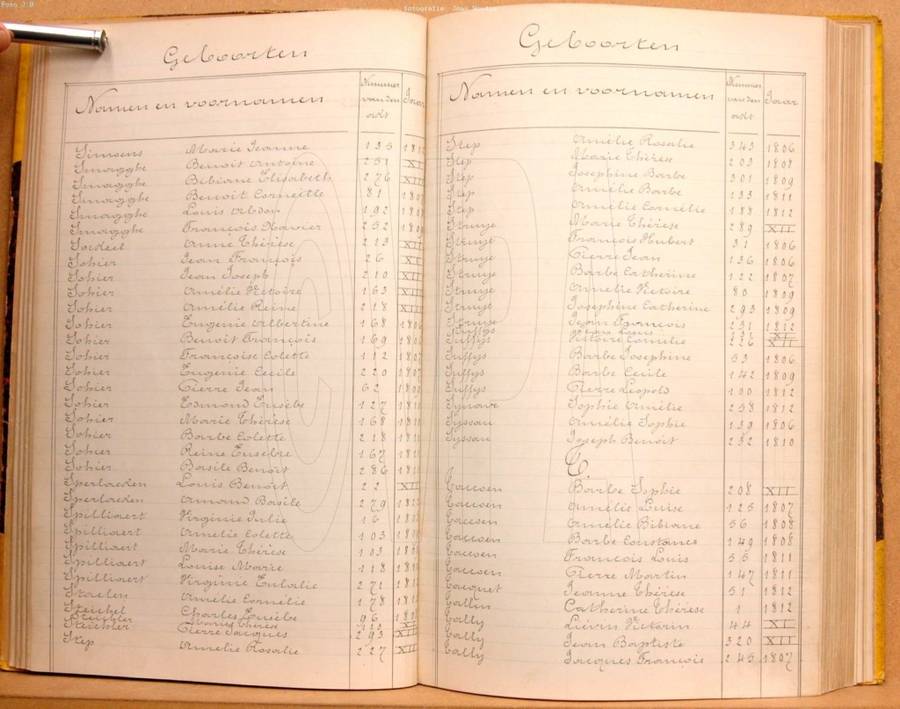 Geboorten
Namen en voornamen Nummer van den akt Jaar
Simoens Marie Jeanne 135
Smagghe Benoit Antoine 251 XI
Smagghe Bibiane Elisabeth 276 XII
Smagghe Benoit Corneille 81
Smagghe Louis Abdon 192
Smagghe François Xavier 252
Sordeil Anne Thérèse 213 XII
Sohier Jean François 26 XI
Sohier Jean Joseph 210 XII
Sohier Amélie Victoire 163 XIII
Sohier Amélie Reine 218 XIII
Sohier Eugenie Albertine 168
Sohier Benoit François 169
Sohier Françoise Colette 112
Sohier Eugenie Cecile 220
Sohier Pierre Jean 62
Sohier Edmond Eusèbe 127
Sohier Marie Thérèse 168
Sohier Barbe Colette 218
Sohier Reine Eusèbe 167
Sohier Basile Benoit 286
Sperlaeden Louis Benoit 22 XII
Sperlaeden Armand Basile 279
Spilliaert Virginie Julie 16
Spilliaert Amélie Colette 103
Spilliaert Marie Thérèse 103
Spilliaert Louise Marie 118
Spilliaert Virginie Eulalie 271
Staelen Amélie Cornélie 178
Steichel Charles Eusèbe 96
Steichler Marie Thérèse XI
Pierre Jacques 293 XIII
Step Amélie Rosalie 227 XII
Geboorten
Namen en voornamen Nummer van den akt Jaar
Step Amélie Rosalie 343 1806
Step Marie Thérèse 203 1808
Step Josephine Barbe 301 1809
Step Amélie Barbe 133 1811
Step Amélie Cornélie 188 1812
Struye Marie Thérèse 289 XII
Struye François Hubert 31 1806
Struye Pierre Jean 136 1806
Struye Barbe Catherine 122 1807
Struye Amélie Victoire 80 1809
Struye Josephine Catherine 293 1809
Struye Jean François 231 1812
Suffys Louis XI
Suffys Victoire Cornélie 226 XII
Suffys Barbe Josephine 53 1806
Suffys Barbe Cecile 142 1809
Suffys Pierre Leopold 100 1812
Synave Sophie Amélie 258 1812
Syssau Amélie Sophie 139 1806
Syssau Joseph Benoit 232 1810
T.
Taccoen Barbe Sophie 208 XII
Taccoen Amélie Louise 125 1807
Taccoen Amélie Bibiane 56 1808
Taccoen Barbe Constance 149 1808
Taccoen François Louis 55 1811
Taccoen Pierre Martin 147 1811
Tacquet Jeanne Thérèse 51 1812
Tallin Catherine Thérèse 1 1812
Tally Liévin Victorin 44 XI
Tally Jean Baptiste 320 XII
Tally Jacques François 245 1807